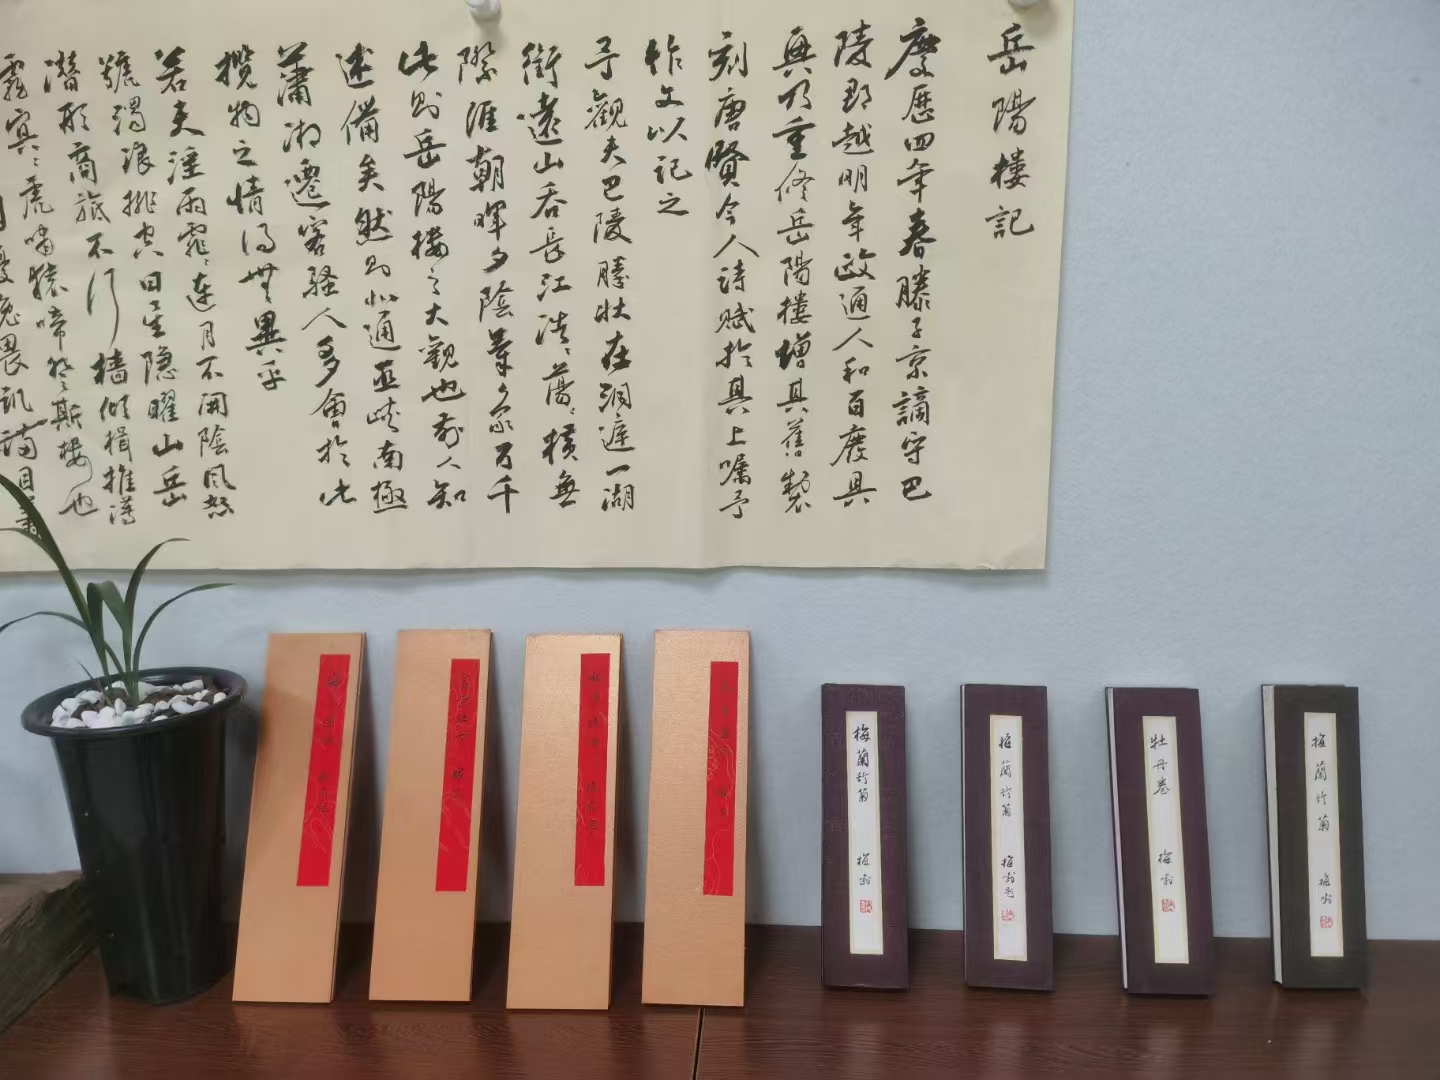 岳陽樓記
慶歷四年春滕子京謫守巴
陵郡越明年政通人和百廢具
興乃重修岳陽樓增其舊製
刻唐賢今人詩賦於其上囑予
作文以記之
予觀夫巴陵勝狀在洞遲一湖
銜遠山吞長江浩浩蕩蕩橫無
際涯朝暉夕陰氣象万千
此則岳陽樓之大觀也前人知
述備矣然則北通巫峽南極
瀟湘遷客騷人多會於此
攬物之情得無異乎
若夫淫雨霏霏連月不開陰風怒
號濁浪排空日星隱曜山岳
潛形商旅不行檣傾楫摧薄
冥冥虎嘯猿啼登斯樓也
憂讒畏譏滿目蕭
梅蘭竹菊
梅翁
梅蘭竹菊
梅翁題
牡丹卷
梅翁
梅蘭竹菊
梅翁